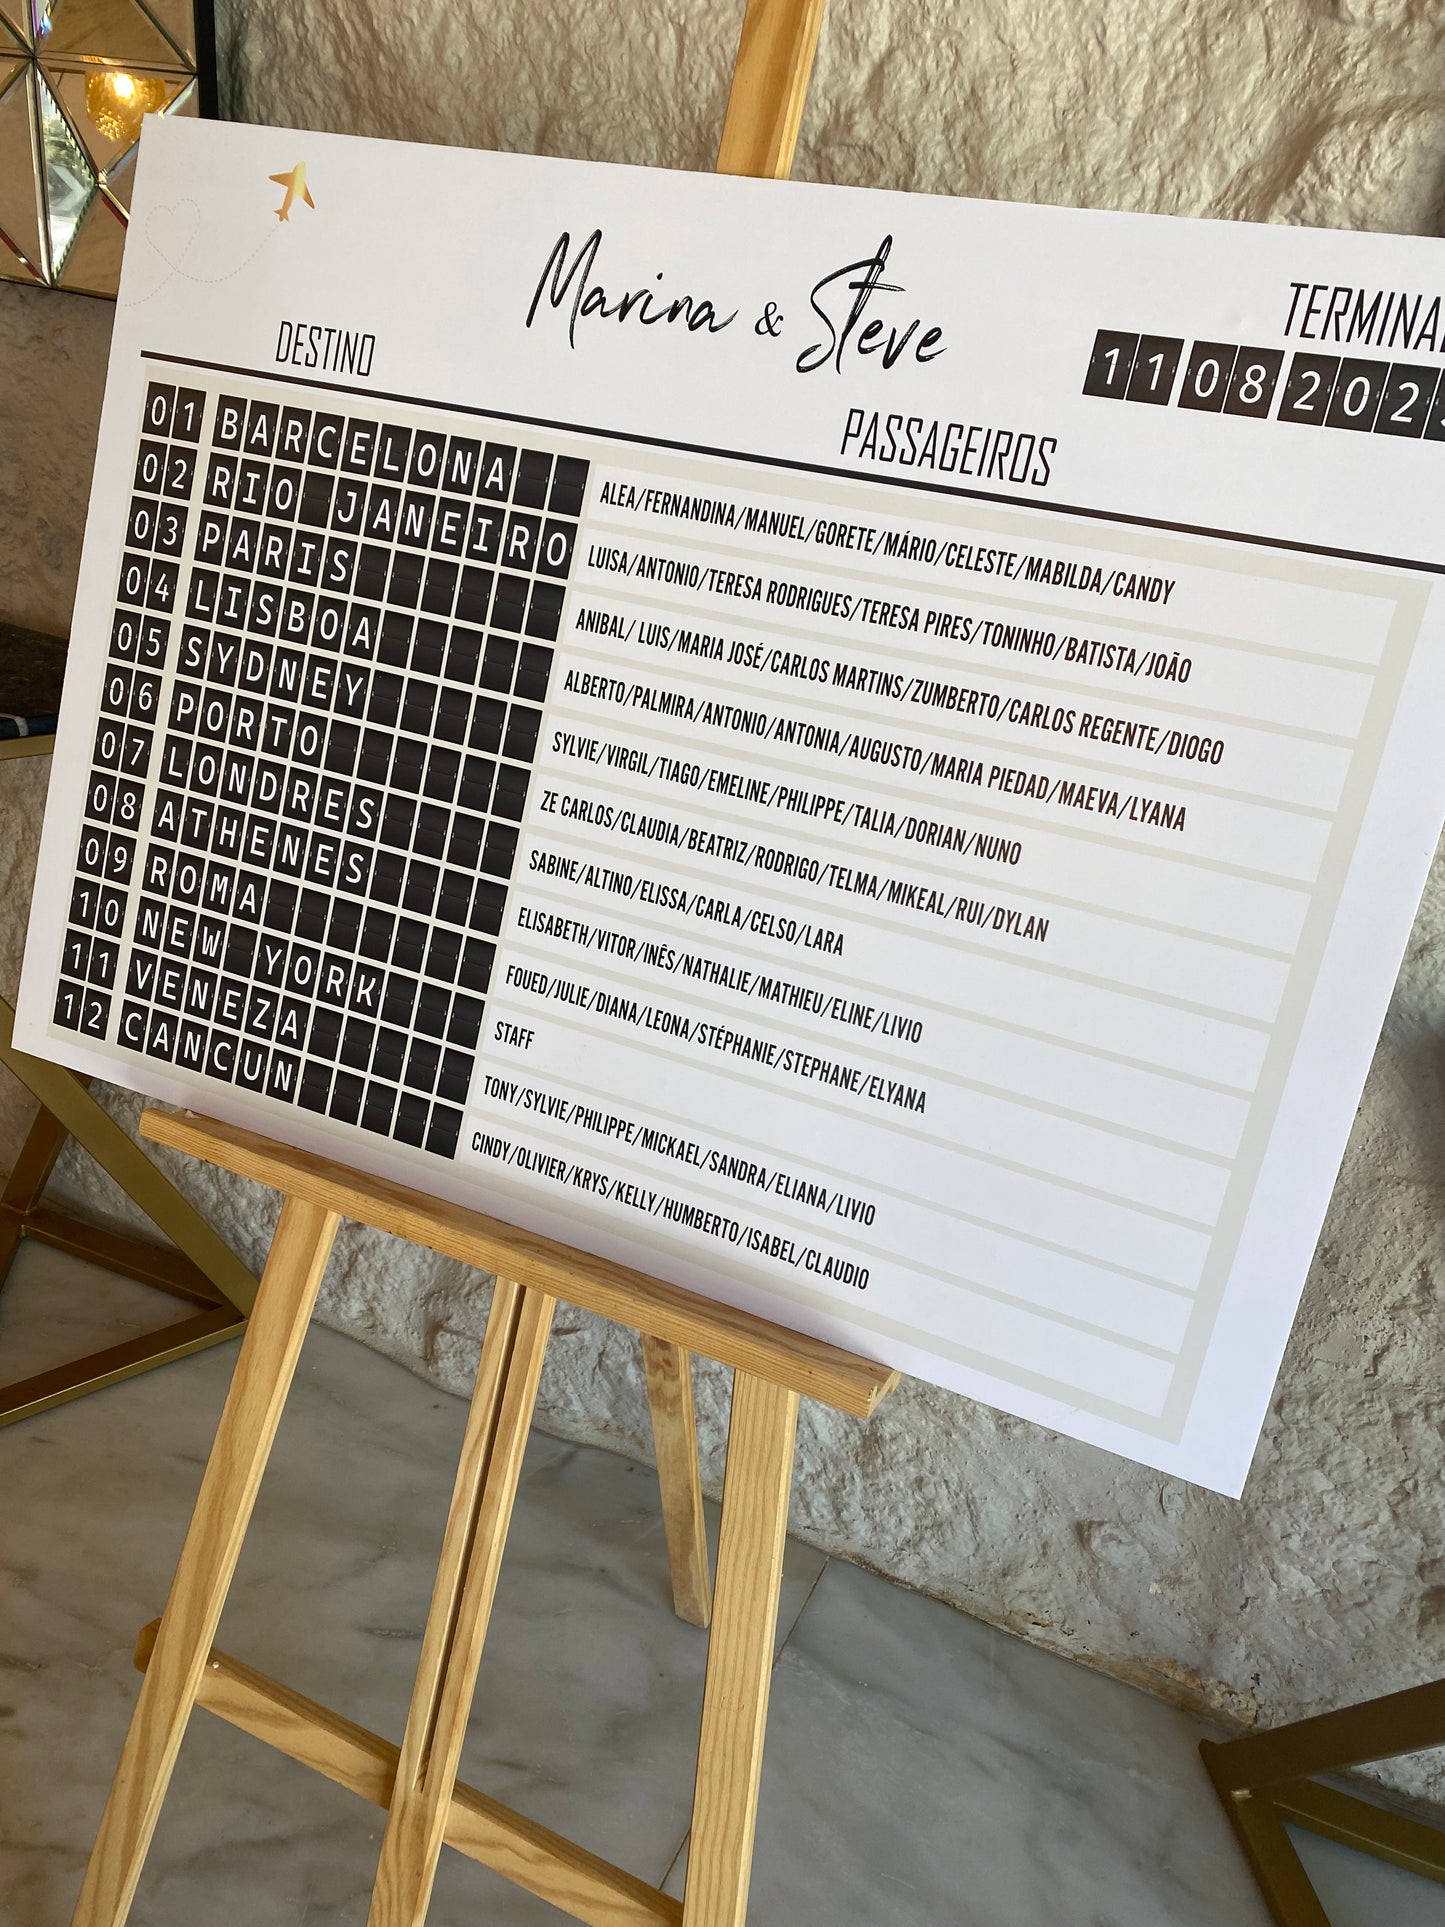 Marina & Steve
TERMINAL
11 08 202
DESTINO
PASSAGEIROS
01 BARCELONA ALEA/FERNANDINA/MANUEL/GORETE/MÁRIO/CELESTE/MABILDA/CANDY
02 RIO JANEIRO LUISA/ANTONIO/TERESA RODRIGUES/TERESA PIRES/TONINHO/BATISTA/JOÃO
03 PARIS ANIBAL/ LUIS/MARIA JOSÉ/CARLOS MARTINS/ZUMBERTO/CARLOS REGENTE/DIOGO
04 LISBOA ALBERTO/PALMIRA/ANTONIO/ANTONIA/AUGUSTO/MARIA PIEDAD/MAEVA/LYANA
05 SYDNEY SYLVIE/VIRGIL/TIAGO/EMELINE/PHILIPPE/TALIA/DORIAN/NUNO
06 PORTO ZE CARLOS/CLAUDIA/BEATRIZ/RODRIGO/TELMA/MIKEAL/RUI/DYLAN
07 LONDRES SABINE/ALTINO/ELISSA/CARLA/CELSO/LARA
08 ATHENES ELISABETH/VITOR/INÊS/NATHALIE/MATHIEU/ELINE/LIVIO
09 ROMA FOUED/JULIE/DIANA/LEONA/STÉPHANIE/STEPHANE/ELYANA
10 NEW YORK STAFF
11 VENEZA TONY/SYLVIE/PHILIPPE/MICKAEL/SANDRA/ELIANA/LIVIO
12 CANCUN CINDY/OLIVIER/KRYS/KELLY/HUMBERTO/ISABEL/CLAUDIO